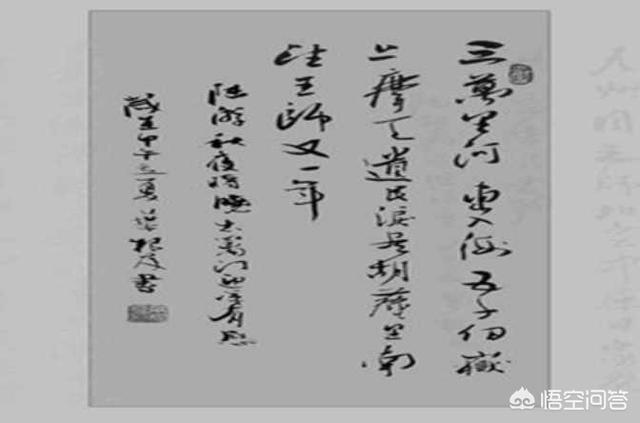 三萬里河東入海五千仞嶽
上摩天遺民淚盡胡塵里南
望王師又一年
陸游秋夜將曉出籬門迎涼有感
歲在甲午之夏書
悟空问答